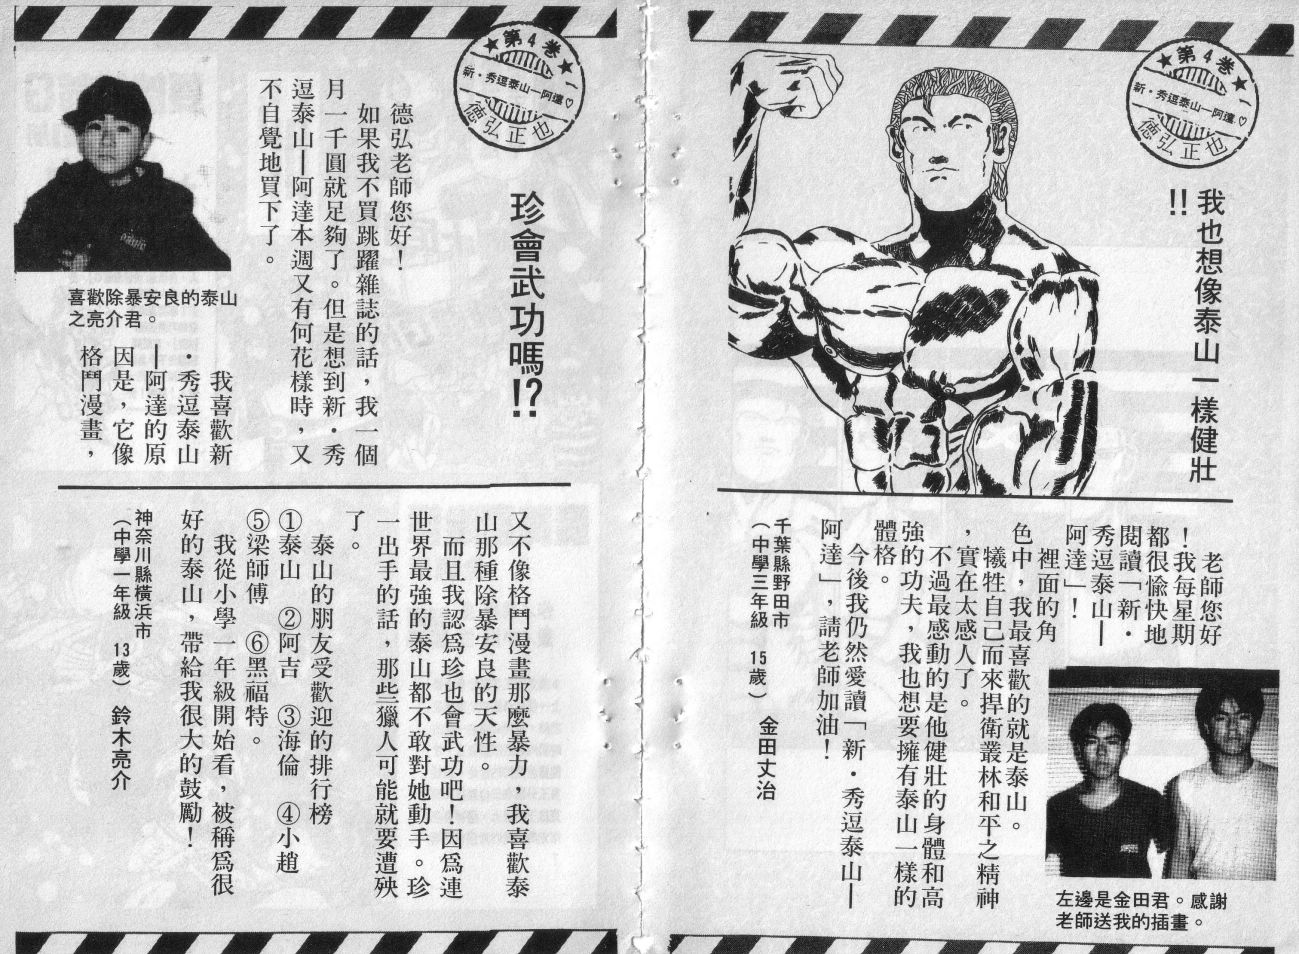 ★第4卷★
新・秀逗泰山—阿達♡
德弘正也
我也想像泰山一樣健壯
!!
老師您好
！我每星期
都很愉快地
閱讀「新・
秀逗泰山—
阿達」！
裡面的角
色中，我最喜歡的就是泰山。
犧牲自己而來捍衛叢林和平之精神
，實在太感人了。
不過最感動的是他健壯的身體和高
強的功夫，我也想要擁有泰山一樣的
體格。
今後我仍然愛讀「新・秀逗泰山—
阿達」，請老師加油！
千葉縣野田市
（中學三年級 15歲） 金田丈治
左邊是金田君。感謝
老師送我的插畫。
★第4卷★
新・秀逗泰山—阿達♡
德弘正也
珍會武功嗎!?
德弘老師您好！
如果我不買跳躍雜誌的話，我一個
月一千圓就足夠了。但是想到新・秀
逗泰山—阿達本週又有何花樣時，又
不自覺地買下了。
喜歡除暴安良的泰山
之亮介君。
我喜歡新
・秀逗泰山
—阿達的原
因是，它像
格鬥漫畫，
又不像格鬥漫畫那麼暴力，我喜歡泰
山那種除暴安良的天性。
而且我認爲珍也會武功吧！因爲連
世界最強的泰山都不敢對她動手。珍
一出手的話，那些獵人可能就要遭殃
了。
泰山的朋友受歡迎的排行榜
①泰山 ②阿吉 ③海倫 ④小趙
⑤梁師傅 ⑥黑福特。
我從小學一年級開始看，被稱爲很
好的泰山，帶給我很大的鼓勵！
神奈川縣橫浜市
（中學一年級 13歲） 鈴木亮介